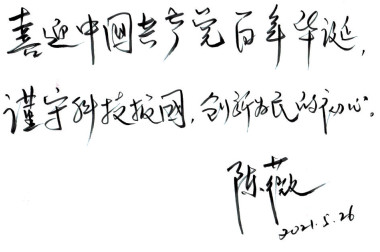 喜迎中国共产党百年华诞，
谨守科技报國，创新为民的初心。
陈薇
2021.5.26